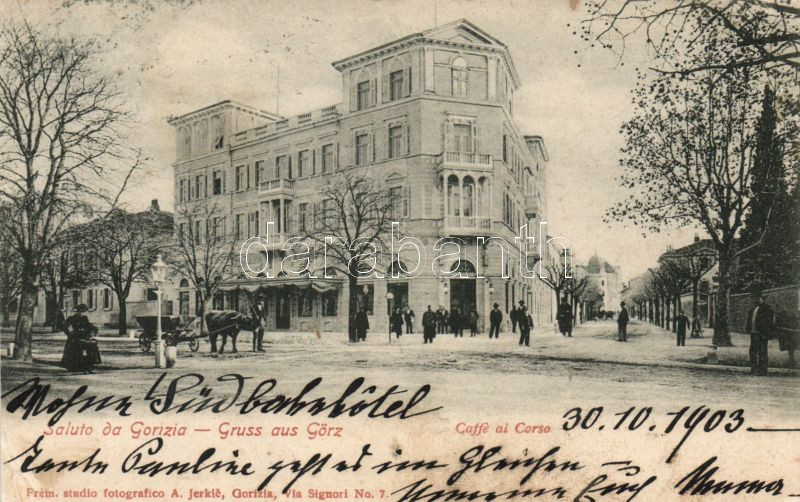 darabanth.com
Wohne Südbahnhôtel
Saluto da Gorizia — Gruss aus Görz
Caffè al Corso
30.10.1903
Tante Pauline geht es im Gleichen
Prem. studio fotografico A. Jerkič, Gorizia, Via Signori No. 7.
Euch